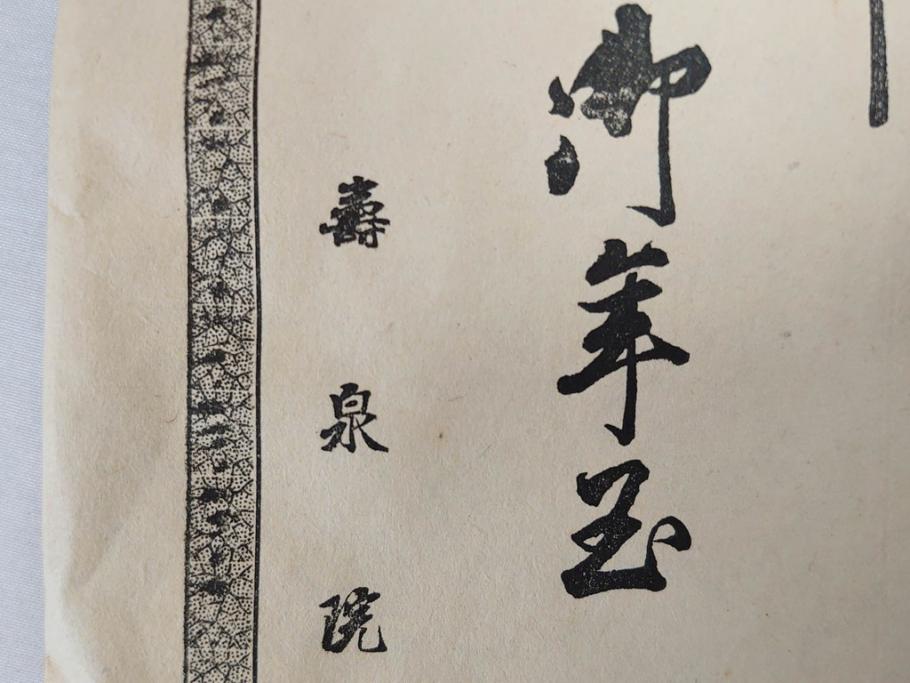 御年玉
壽泉院